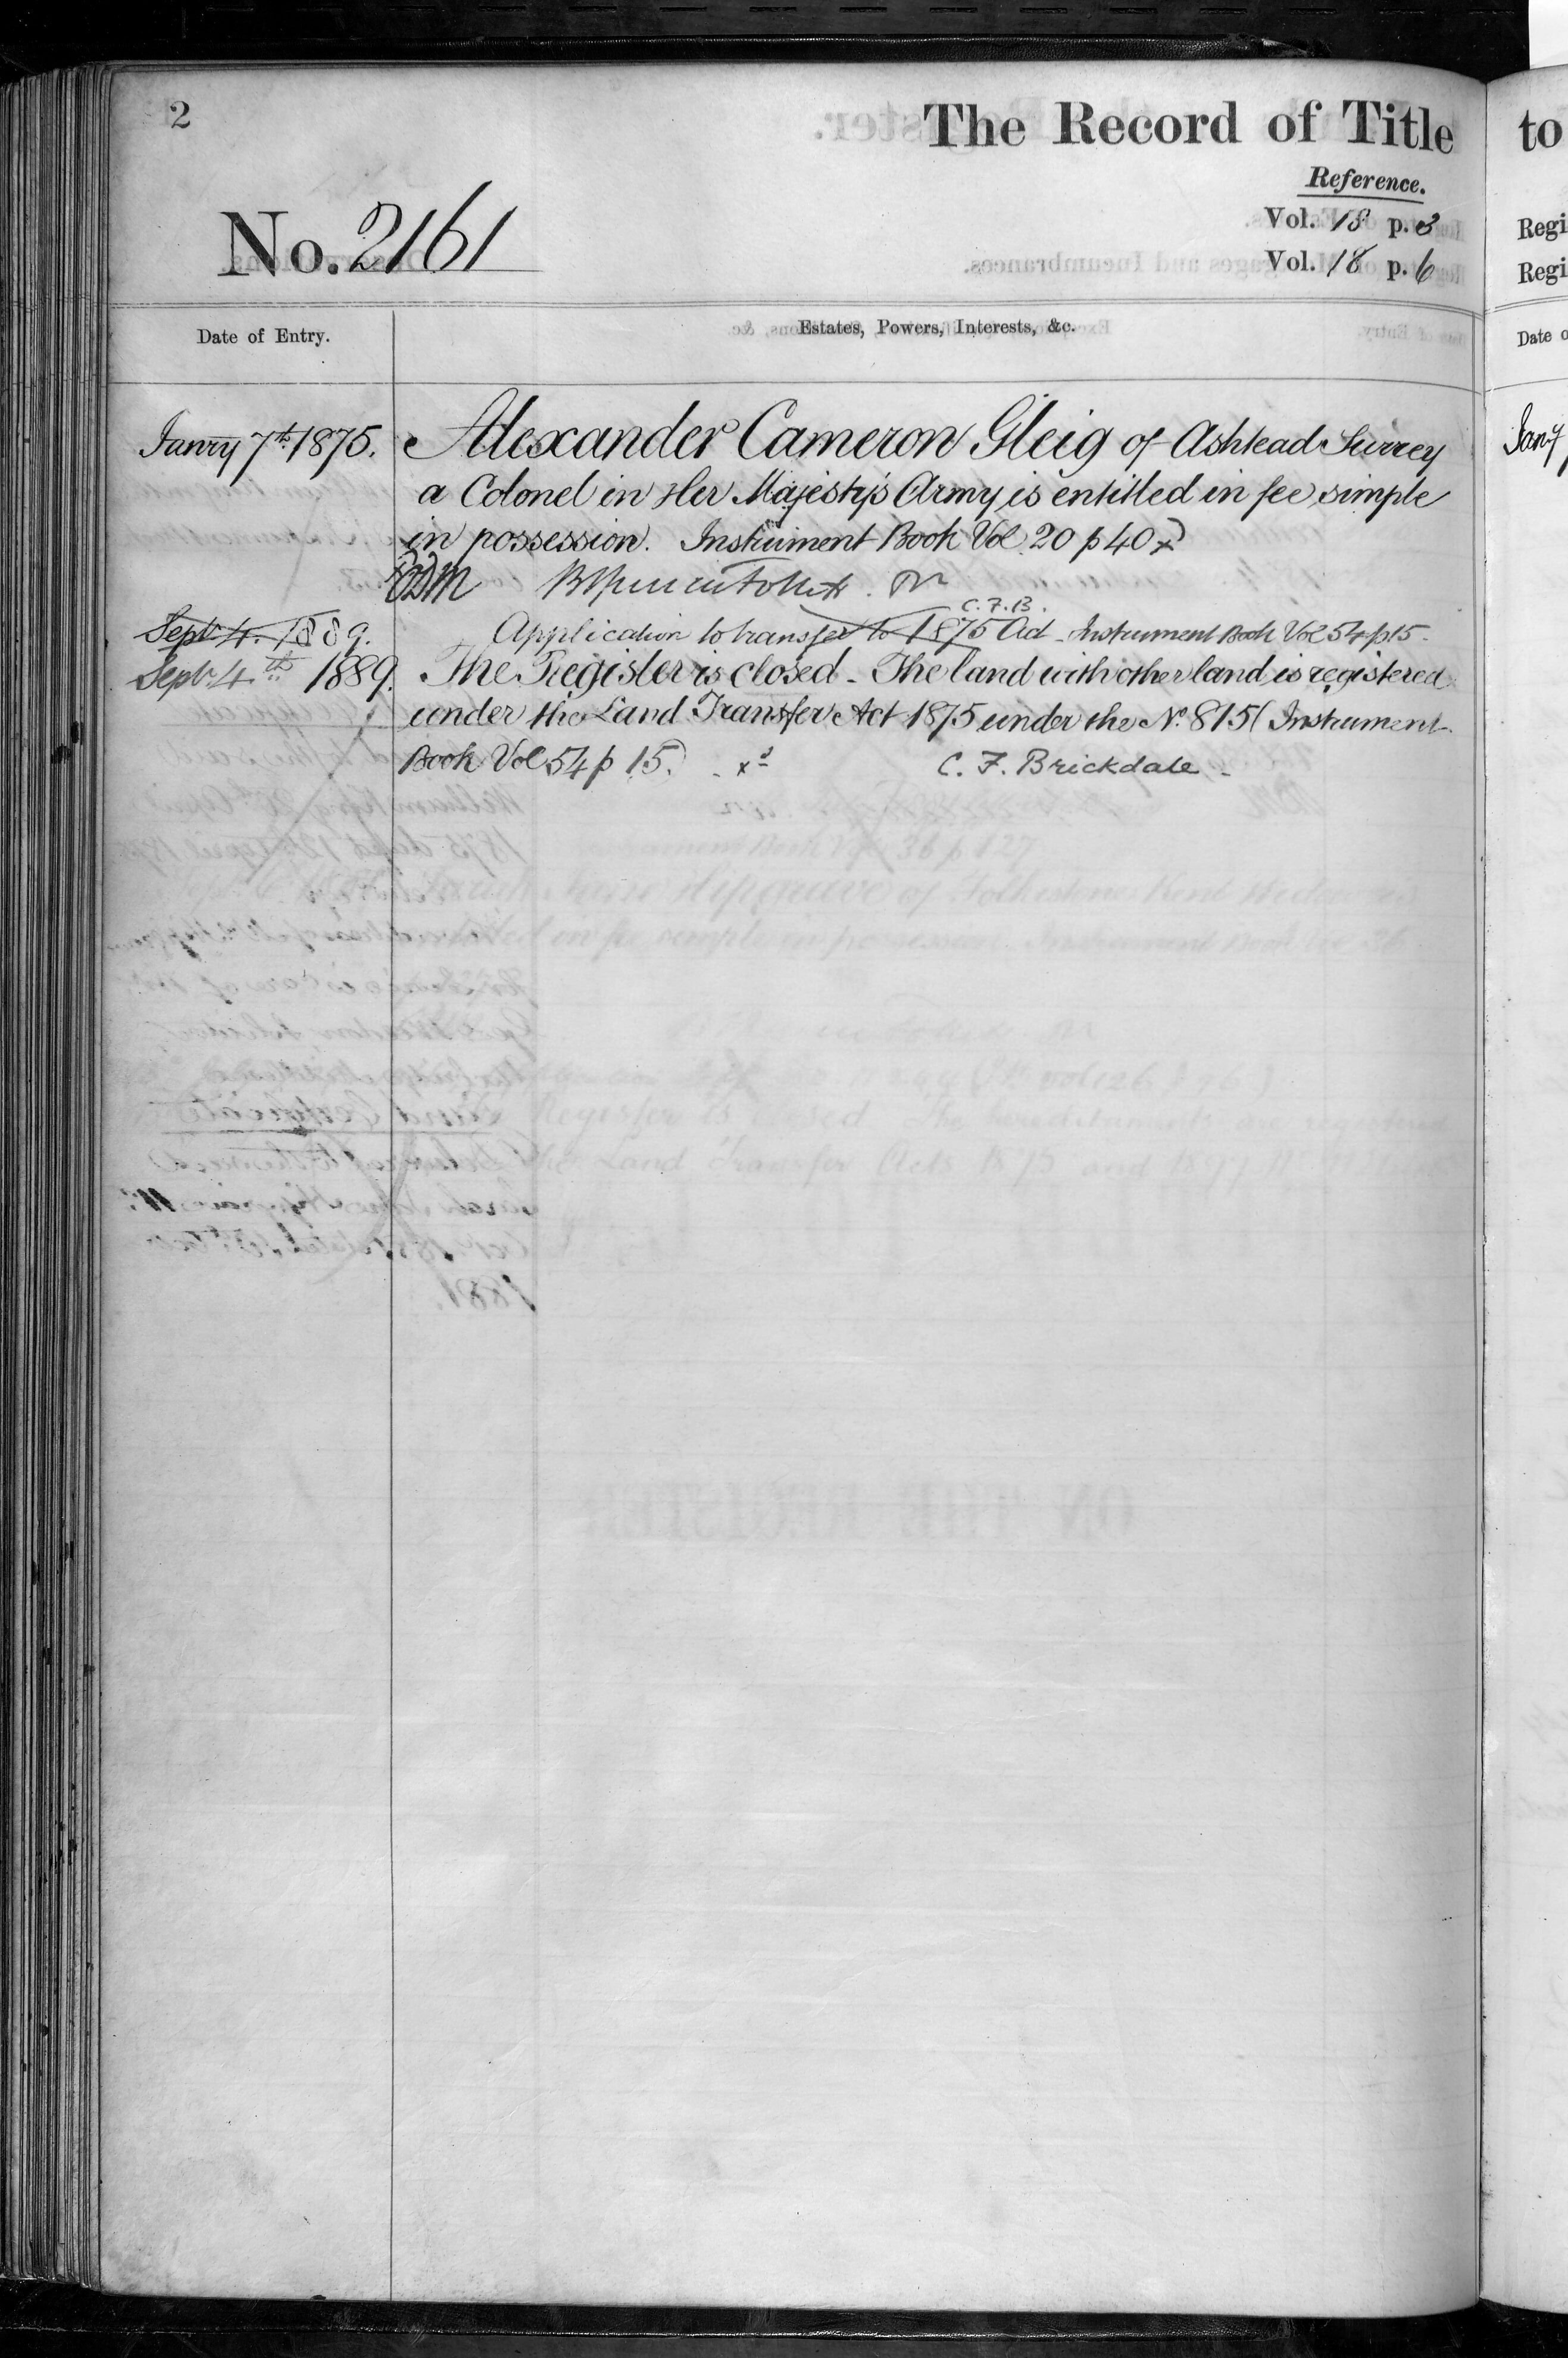 2
The Record of Title
Reference.
No. 2161
Vol. 18 p. 3
Vol. 18 p. 6
Date of Entry.
Estates, Powers, Interests, &c.
Janry 7th 1875.
Alexander Cameron Gleig of Ashtead Surrey
a Colonel in Her Majesty's Army is entitled in fee simple
in possession. Instrument Book Vol 20 p 40
C.F.B.
Sept 4. 1889.
Application to transfer to 1875 Act - Instrument Book Vol 54 p 15.
Sept 4th 1889.
The Register is closed - The land with other land is registered
under the Land Transfer Act 1875 under the No. 815 (Instrument
Book Vol 54 p 15)
C. F. Brickdale -
to
Regi
Regi
Date o
Jany